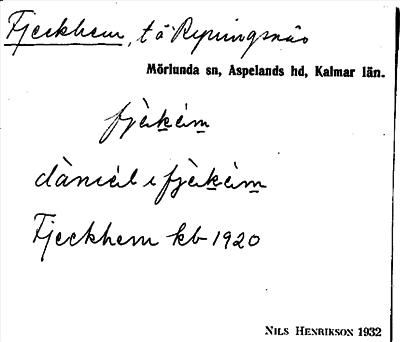 Fjeckhem, tå Ryningsnäs
Mörlunda sn, Aspelands hd, Kalmar län.
fjèkém
dàniél i fjèkém
Fjeckhem kb 1920
NILS HENRIKSON 1932